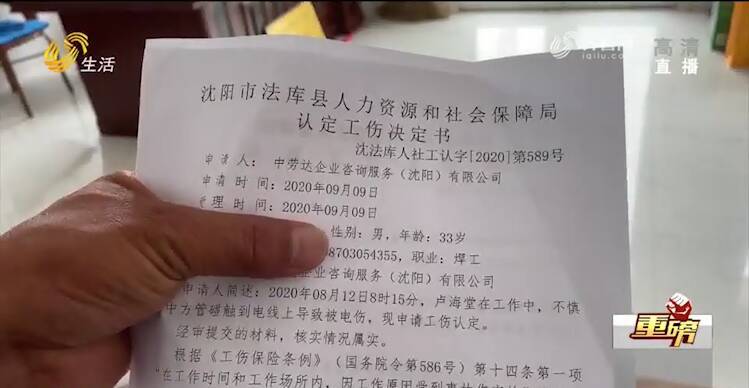 生活
高清
iqilu.com
直播
沈阳市法库县人力资源和社会保障局
认定工伤决定书
沈法库人社工认字[2020]第589号
申请人：中劳达企业咨询服务（沈阳）有限公司
申请时间：2020年09月09日
受理时间：2020年09月09日
性别：男，年龄：33岁
8703054355，职业：焊工
企业咨询服务（沈阳）有限公司
申请人简述：2020年08月12日8时15分，卢海堂在工作中，不慎
中方管碰触到电线上导致被电伤，现申请工伤认定。
经审提交的材料，核实情况属实。
根据《工伤保险条例》（国务院令第586号）第十四条第一项
"在工作时间和工作场所内，因工作原因受到事故伤害的
重磅